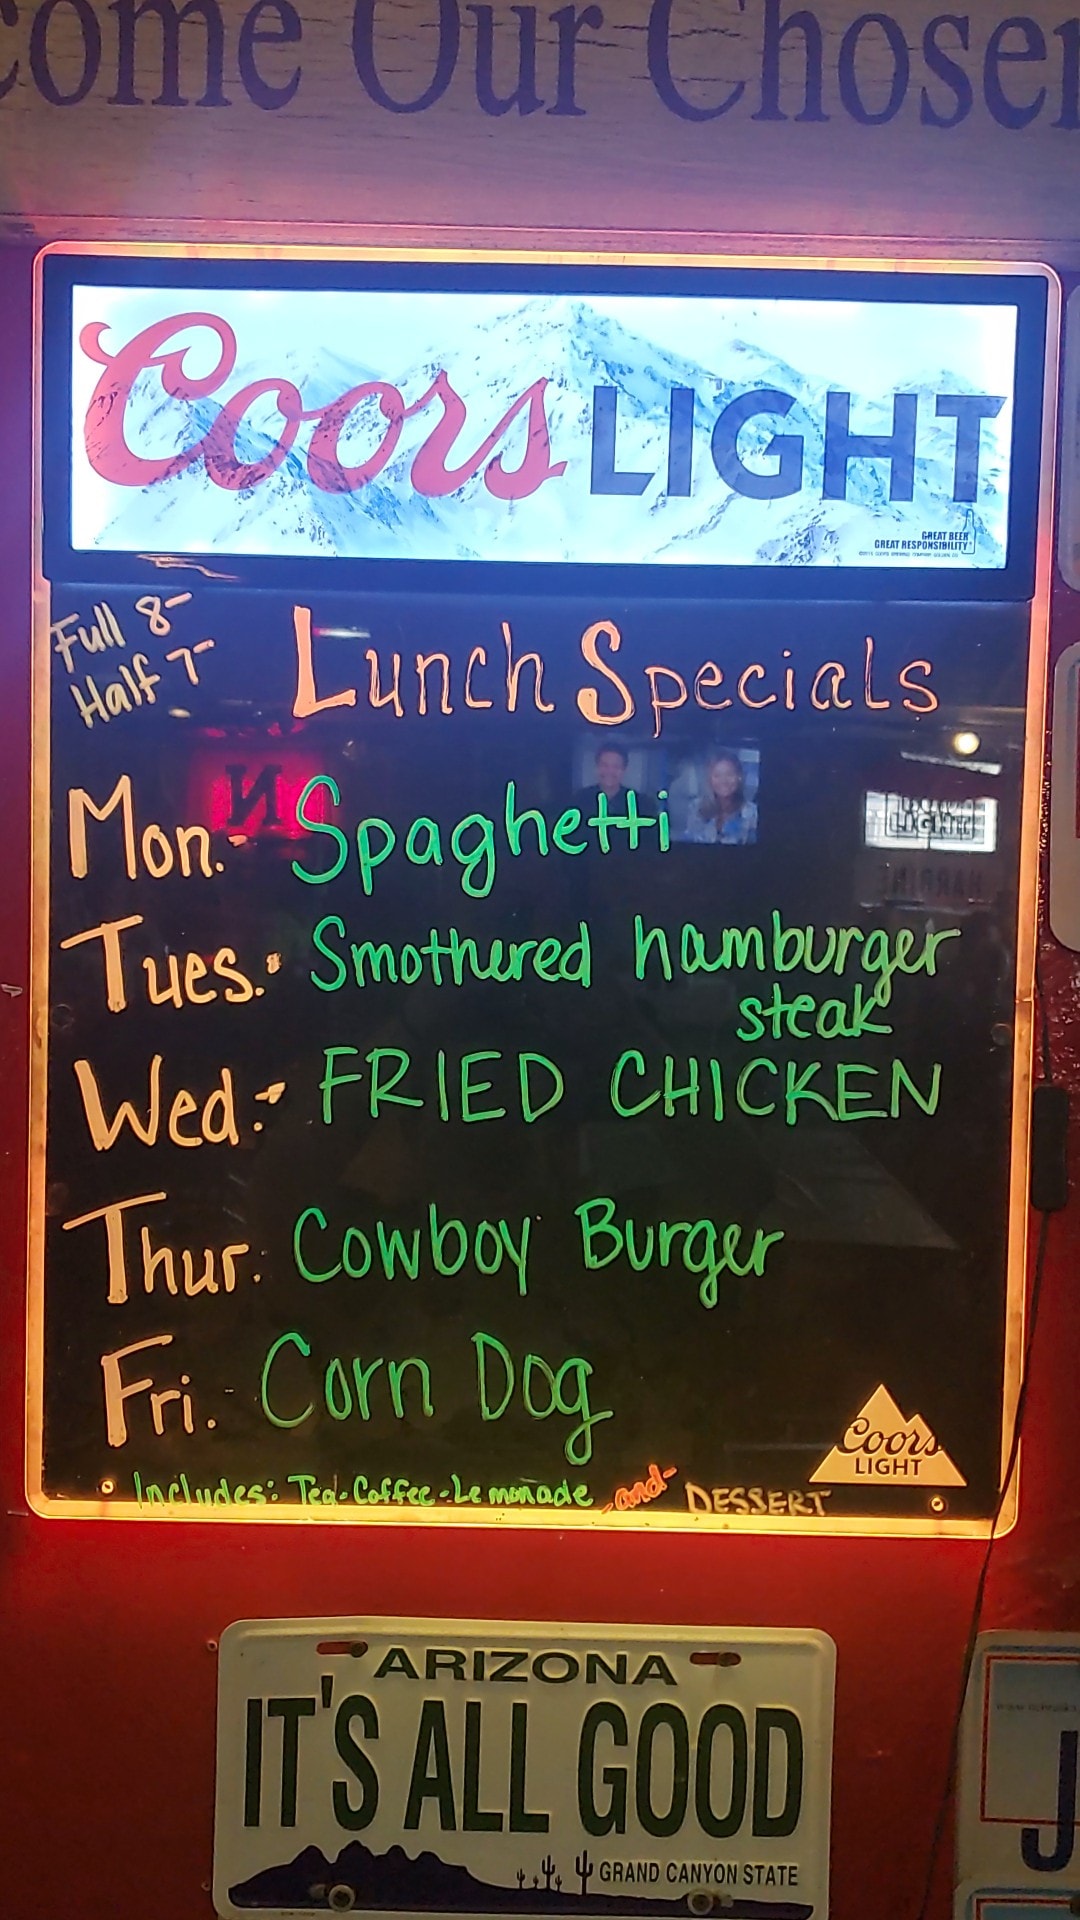 come Our Chosen
Coors LIGHT
GREAT BEER
GREAT RESPONSIBILITY
Full 8-
Half 7-
Lunch Specials
Mon.- Spaghetti
Tues.- Smothered hamburger
steak
Wed.- FRIED CHICKEN
Thur. Cowboy Burger
Fri. - Corn Dog
Coors
LIGHT
Includes: Tea-Coffee-Lemonade -and- DESSERT
ARIZONA
IT'S ALL GOOD
GRAND CANYON STATE
J